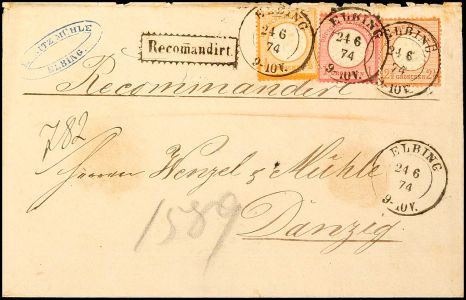 MORITZ MÜHLE
ELBING.
Recomandirt.
ELBING
24 6
74
9-10V.
ELBING
24 6
74
9-10V.
ELBING
24 6
74
2½ GROSCHEN 2½
Recommandirt
782
Herren Wenzel & Mühle
Danzig
1589
ELBING
24 6
74
9-10V.